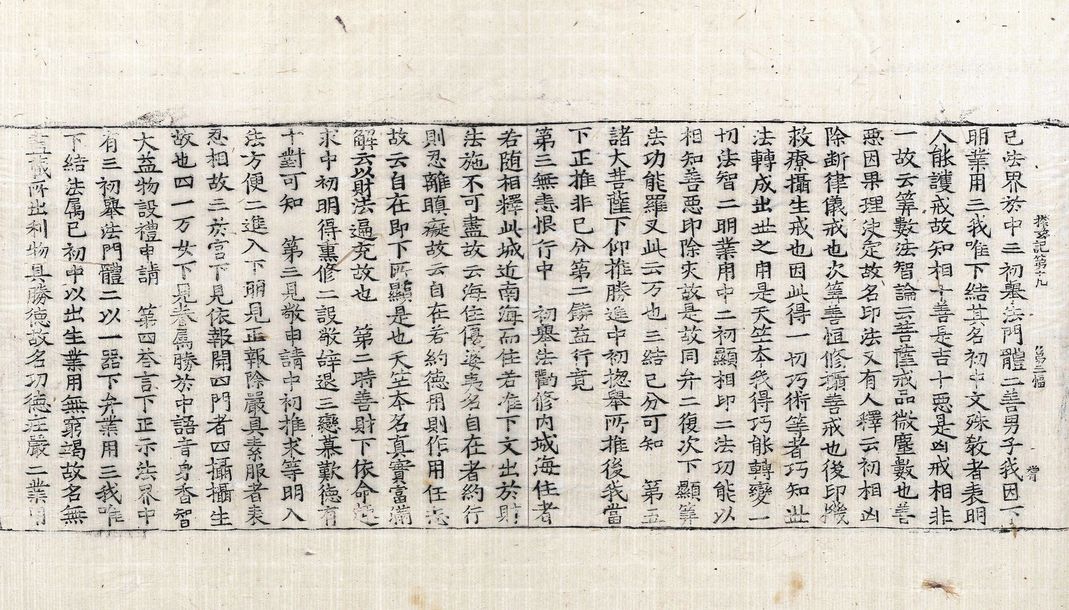 探玄記第十九 第三幅
己法界於中三初舉法門體二善男子我因下
明業用三我唯下結其名初中文殊敎者表明
人能護戒故知相十善是吉十惡是凶戒相非
一故云筭數法智論云菩薩戒品微塵數也善
惡因果理使定故名印法又有人釋云初相凶
除斷律儀戒也次筭善恒修攝善戒也後印機
救療攝生戒也因此得一切巧術等者巧知世
法轉成出世之用是天竺本我得巧能轉變一
切法智二明業用中二初顯相印二法功能以
相知善惡印除灾故是故同弁二復次下顯筭
法功能羅叉此云万也三結己分可知 第五
諸大菩薩下仰推勝進中初揔舉所推後我當
下正推非己分第二饒益行竟
第三無恚恨行中 初舉法勸修內城海住者
若隨相釋此城近南海而住若准下文出於財
法施不可盡故云海住優婆夷名自在者約行
則忍離瞋癡故云自在若約德用則作用任志
故云自在即下所顯是也天竺本名真實富滿
解云以財法逼充故也 第二時善財下依命趣
求中初明得熏修二設敬辞退三戀慕歎德有
十對可知 第三見敬申請中初推求等明入
法方便二進入下明見正報除嚴具素服者表
忍相故三於宮下見依報開四門者四攝攝生
故也四一万女下見眷属勝於中語音身香智
大益物設禮申請 第四答言下正示法界中
有三初舉法門體二以一器下弁業用三我唯
下結法属己初中以出生業用無窮竭故名無
盡藏所出利物具勝德故名功德莊嚴二業用